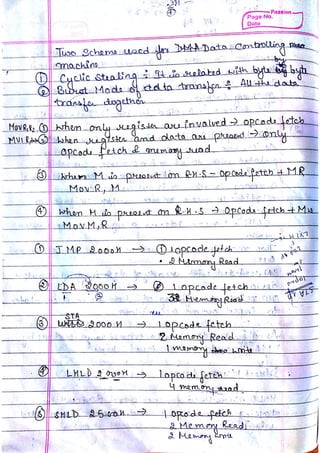 Passion
Page No.
Date
Two Scheme used for DMA Data Controlling
machine.
① Cyclic Stealing : It is related with byte by byte
② Burst Mode of data transfer : All the data
transfer together
MOV R,R ① When only register are involved → opcode fetch
MVI R, ② When register and data are present → only
opcode fetch & memory read.
③ When M is present on R.H.S - opcode fetch + MR
Mov R, M
④ When M is present on R.H.S → opcode fetch +
Mov M, R
① JMP 2000H → ① 1 opcode fetch
• 2 Memory Read
② LDA 2000H → 1 opcode fetch
3 Memory Read
③ STA 2000 H → 1 opcode fetch
2 Memory Read
1 memory write
④ LHLD 2000H → 1 opcode fetch
4 memory read
⑤ SHLD 2500H → 1 opcode fetch
2 Memory Read
2 Memory write